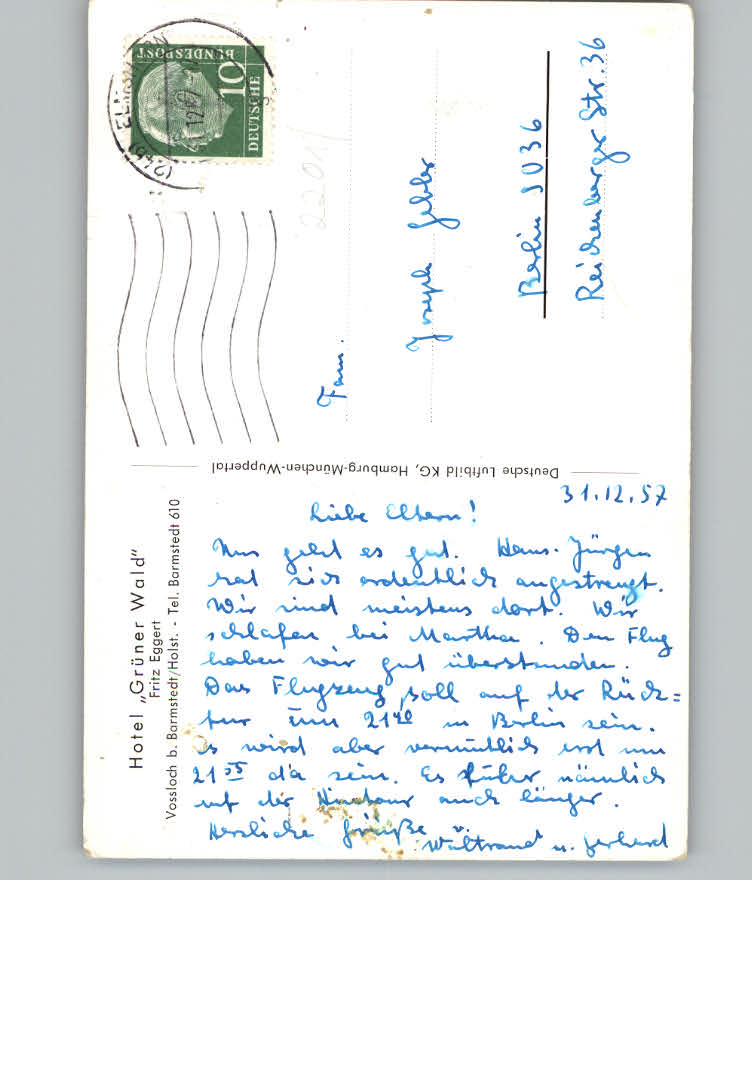 Hotel „Grüner Wald"
Fritz Eggert
Vossloch b. Barmstedt/Holst. - Tel. Barmstedt 610
31.12.57
Liebe Eltern!
Uns geht es gut. Hans-Jürgen
hat sich ordentlich angestrengt.
Wir sind meistens dort. Wir
schlafen bei Martha. Den Flug
haben wir gut überstanden.
Das Flugzeug soll auf der Rück=
tur um 21 40 in Berlin sein.
Es wird aber vermutlich erst um
21 55 da sein. Es fuhr nämlich
auf der Hintour auch länger.
Herzliche Grüße
Waltraud u. Gerhard
Deutsche Luftbild KG, Hamburg-München-Wuppertal
DEUTSCHE
BUNDESPOST
10
(24b) ELMSHORN
2201
Fam.
Joseph Gebler
Berlin SO36
Reichenberger Str. 36